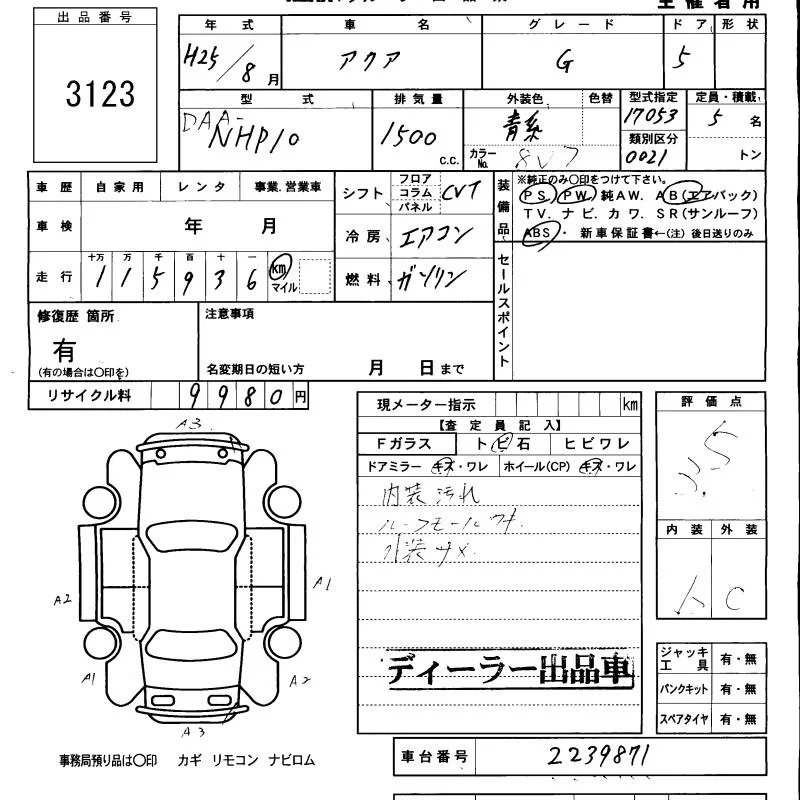 出品番号
3123
年式 車名 グレード ドア 形状
H25/8月 アクア G 5
型式 排気量 外装色 色替 型式指定 定員・積載
DAA-NHP10 1500 C.C. 青系 17053 5名
カラーNo. 8V7 類別区分 0021 トン
車歴 自家用 レンタ 事業.営業車
車検 年 月
走行 十万 万 千 百 十 一
115936 km マイル
シフト フロア コラム パネル CVT
冷房 エアコン
燃料 ガソリン
装備品 ※純正のみ○印をつけて下さい。
PS. PW. 純AW. AB(エアバック)
TV. ナビ. カワ. SR(サンルーフ)
ABS・ 新車保証書←(注) 後日送りのみ
セールスポイント
修復歴 箇所
有
(有の場合は○印を)
注意事項
名変期日の短い方 月 日まで
リサイクル料 9980円
現メーター指示 km
【査定員記入】
Fガラス トビ石 ヒビワレ
ドアミラー キズ・ワレ ホイール(CP) キズ・ワレ
内装汚れ
外装サメ
ディーラー出品車
評価点
3.5
内装 外装
C
ジャッキ工具 有・無
パンクキット 有・無
スペアタイヤ 有・無
A3
A2
A1
A1
A2
A3
事務局預り品は○印 カギ リモコン ナビロム
車台番号 2239871